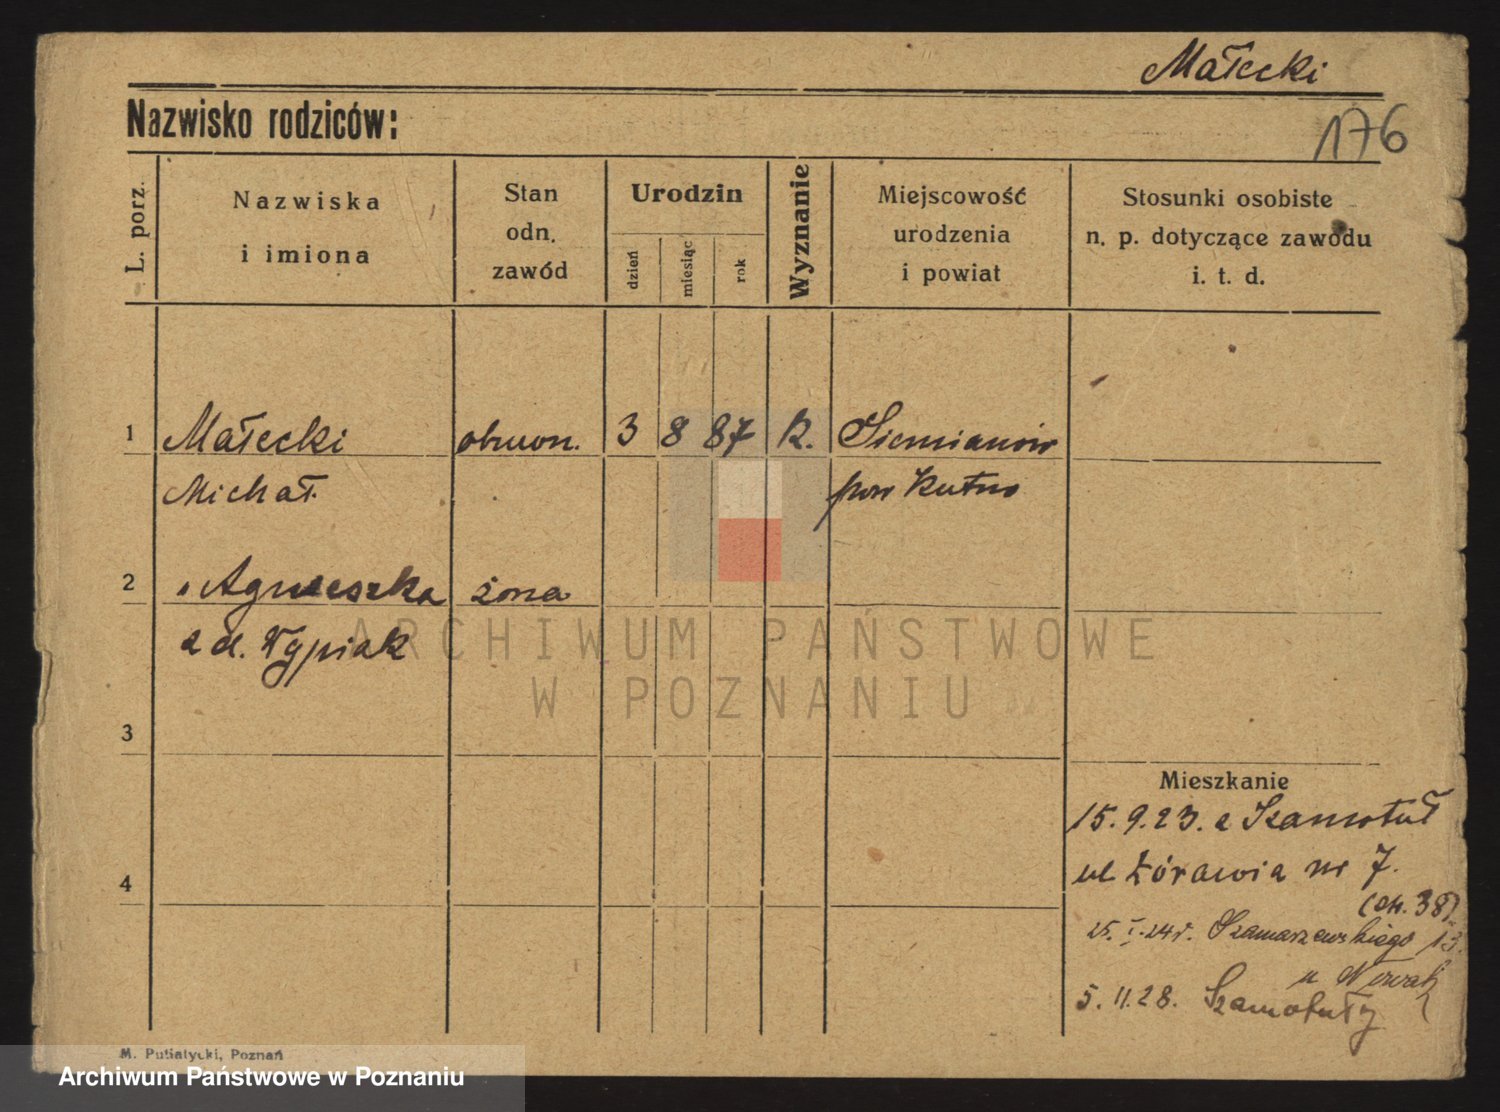 Małecki
Nazwisko rodziców:
176
L. porz.
Nazwiska
i imiona
Stan
odn.
zawód
Urodzin
dzień
miesiąc
rok
Wyznanie
Miejscowość
urodzenia
i powiat
Stosunki osobiste
n. p. dotyczące zawodu
i. t. d.
1 Małecki 3 8 87 k. Siemianów
Michał pow Kutno
2 Agnieszka żona
z d. Wypiak
3
Mieszkanie
15.9.23. z Szamotuł
ul Żórawia nr 7.
4
38)
25.I.24r. Szamarzewskiego 13.
u Nowak
5.11.28. Szamotuły
M. Putiatycki, Poznań
ARCHIWUM PAŃSTWOWE
W POZNANIU
Archiwum Państwowe w Poznaniu